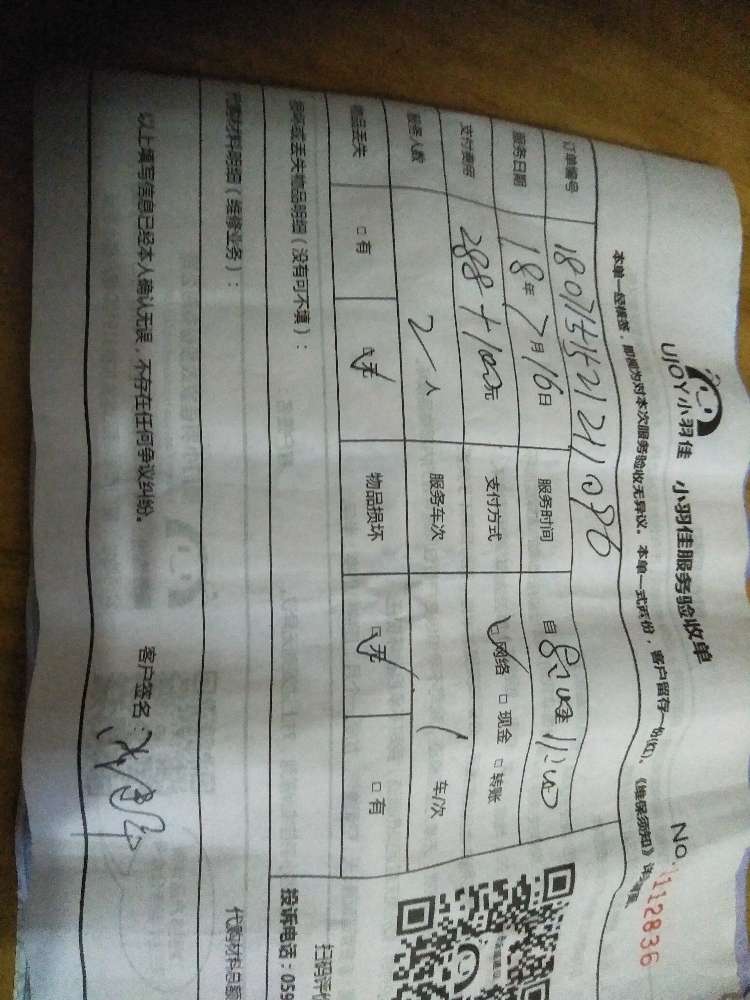 UJOY小羽佳 小羽佳服务验收单
No. 1112836
本单一经核签，即视为对本次服务验收无异议。本单一式两份，客户留存一份(红)。《维保须知》
订单编号
服务日期 18年7月16日 服务时间 自
支付费用 288+100元 支付方式 网络 □ 现金 □ 转账
服务人数 2人 服务车次 1 车/次
物品丢失 □ 有 □ 无 物品损坏 □ 无 □ 有
损坏或丢失物品明细（没有可不填）：
代购材料明细（维修业务）： 代购材料总额
以上填写信息已经本人确认无误，不存在任何争议纠纷。 客户签名：
扫码评价
投诉电话：059